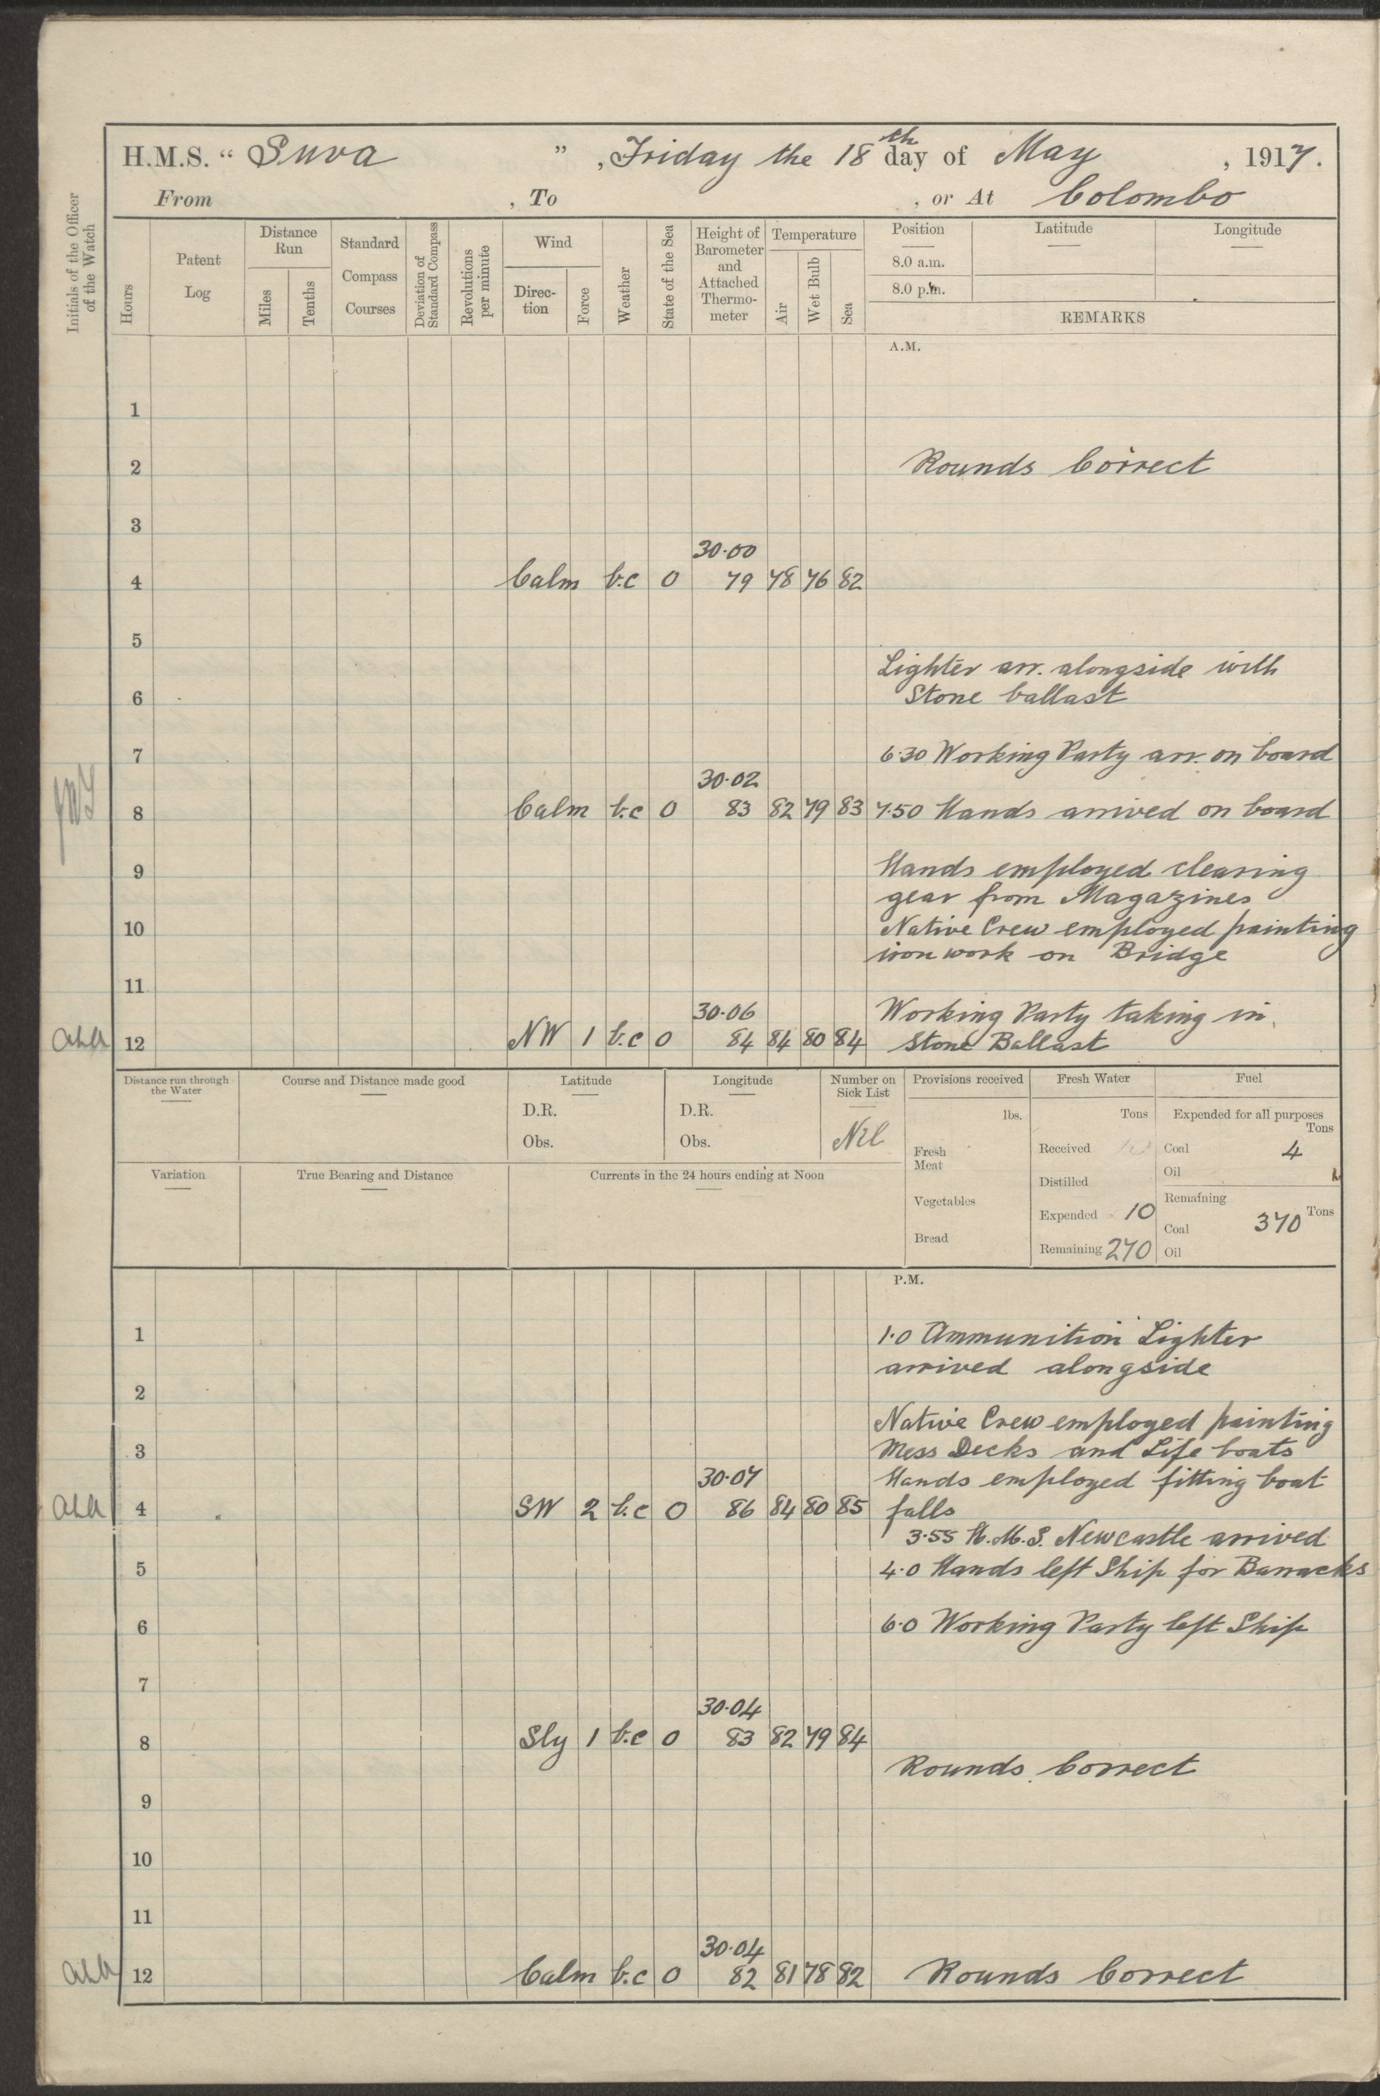 H.M.S. “ Suva ” , Friday the 18th day of May , 1917.
From , To , or At Colombo
Initials of the Officer of the Watch
Hours
Patent Log
Distance Run
Miles
Tenths
Standard Compass Courses
Deviation of Standard Compass
Revolutions per minute
Wind
Direction
Force
Weather
State of the Sea
Height of Barometer and Attached Thermometer
Temperature
Air
Wet Bulb
Sea
Position
8.0 a.m.
8.0 p.m.
Latitude
Longitude
REMARKS
A.M.
1
2 Rounds Correct
3
30·00
4 Calm b.c 0 79 78 76 82
5
Lighter arr. alongside with
6 Stone ballast
7 6·30 Working Party arr. on board
30·02
8 Calm b.c 0 83 82 79 83 7·50 Hands arrived on board
9 Hands employed clearing
gear from Magazines
10 Native Crew employed painting
iron work on Bridge
11
30·06 Working Party taking in
12 NW 1 b.c 0 84 84 80 84 Stone Ballast
Distance run through the Water
Course and Distance made good
Latitude
D.R.
Obs.
Longitude
D.R.
Obs.
Number on Sick List
Nil
Provisions received
lbs.
Fresh Meat
Vegetables
Bread
Fresh Water
Tons
Received
Distilled
Expended 10
Remaining 270
Fuel
Expended for all purposes
Tons
Coal 4
Oil
Remaining
Tons
Coal 370
Oil
Variation
True Bearing and Distance
Currents in the 24 hours ending at Noon
P.M.
1 1·0 Ammunition Lighter
arrived alongside
2
Native Crew employed painting
3 Mess Decks and Life boats
30·07 Hands employed fitting boat
4 SW 2 b.c 0 86 84 80 85 falls
3·55 H.M.S. Newcastle arrived
5 4·0 Hands left Ship for Barracks
6 6·0 Working Party left Ship
7
30·04
8 Sly 1 b.c 0 83 82 79 84
Rounds Correct
9
10
11
30·04
12 Calm b.c 0 82 81 78 82 Rounds Correct